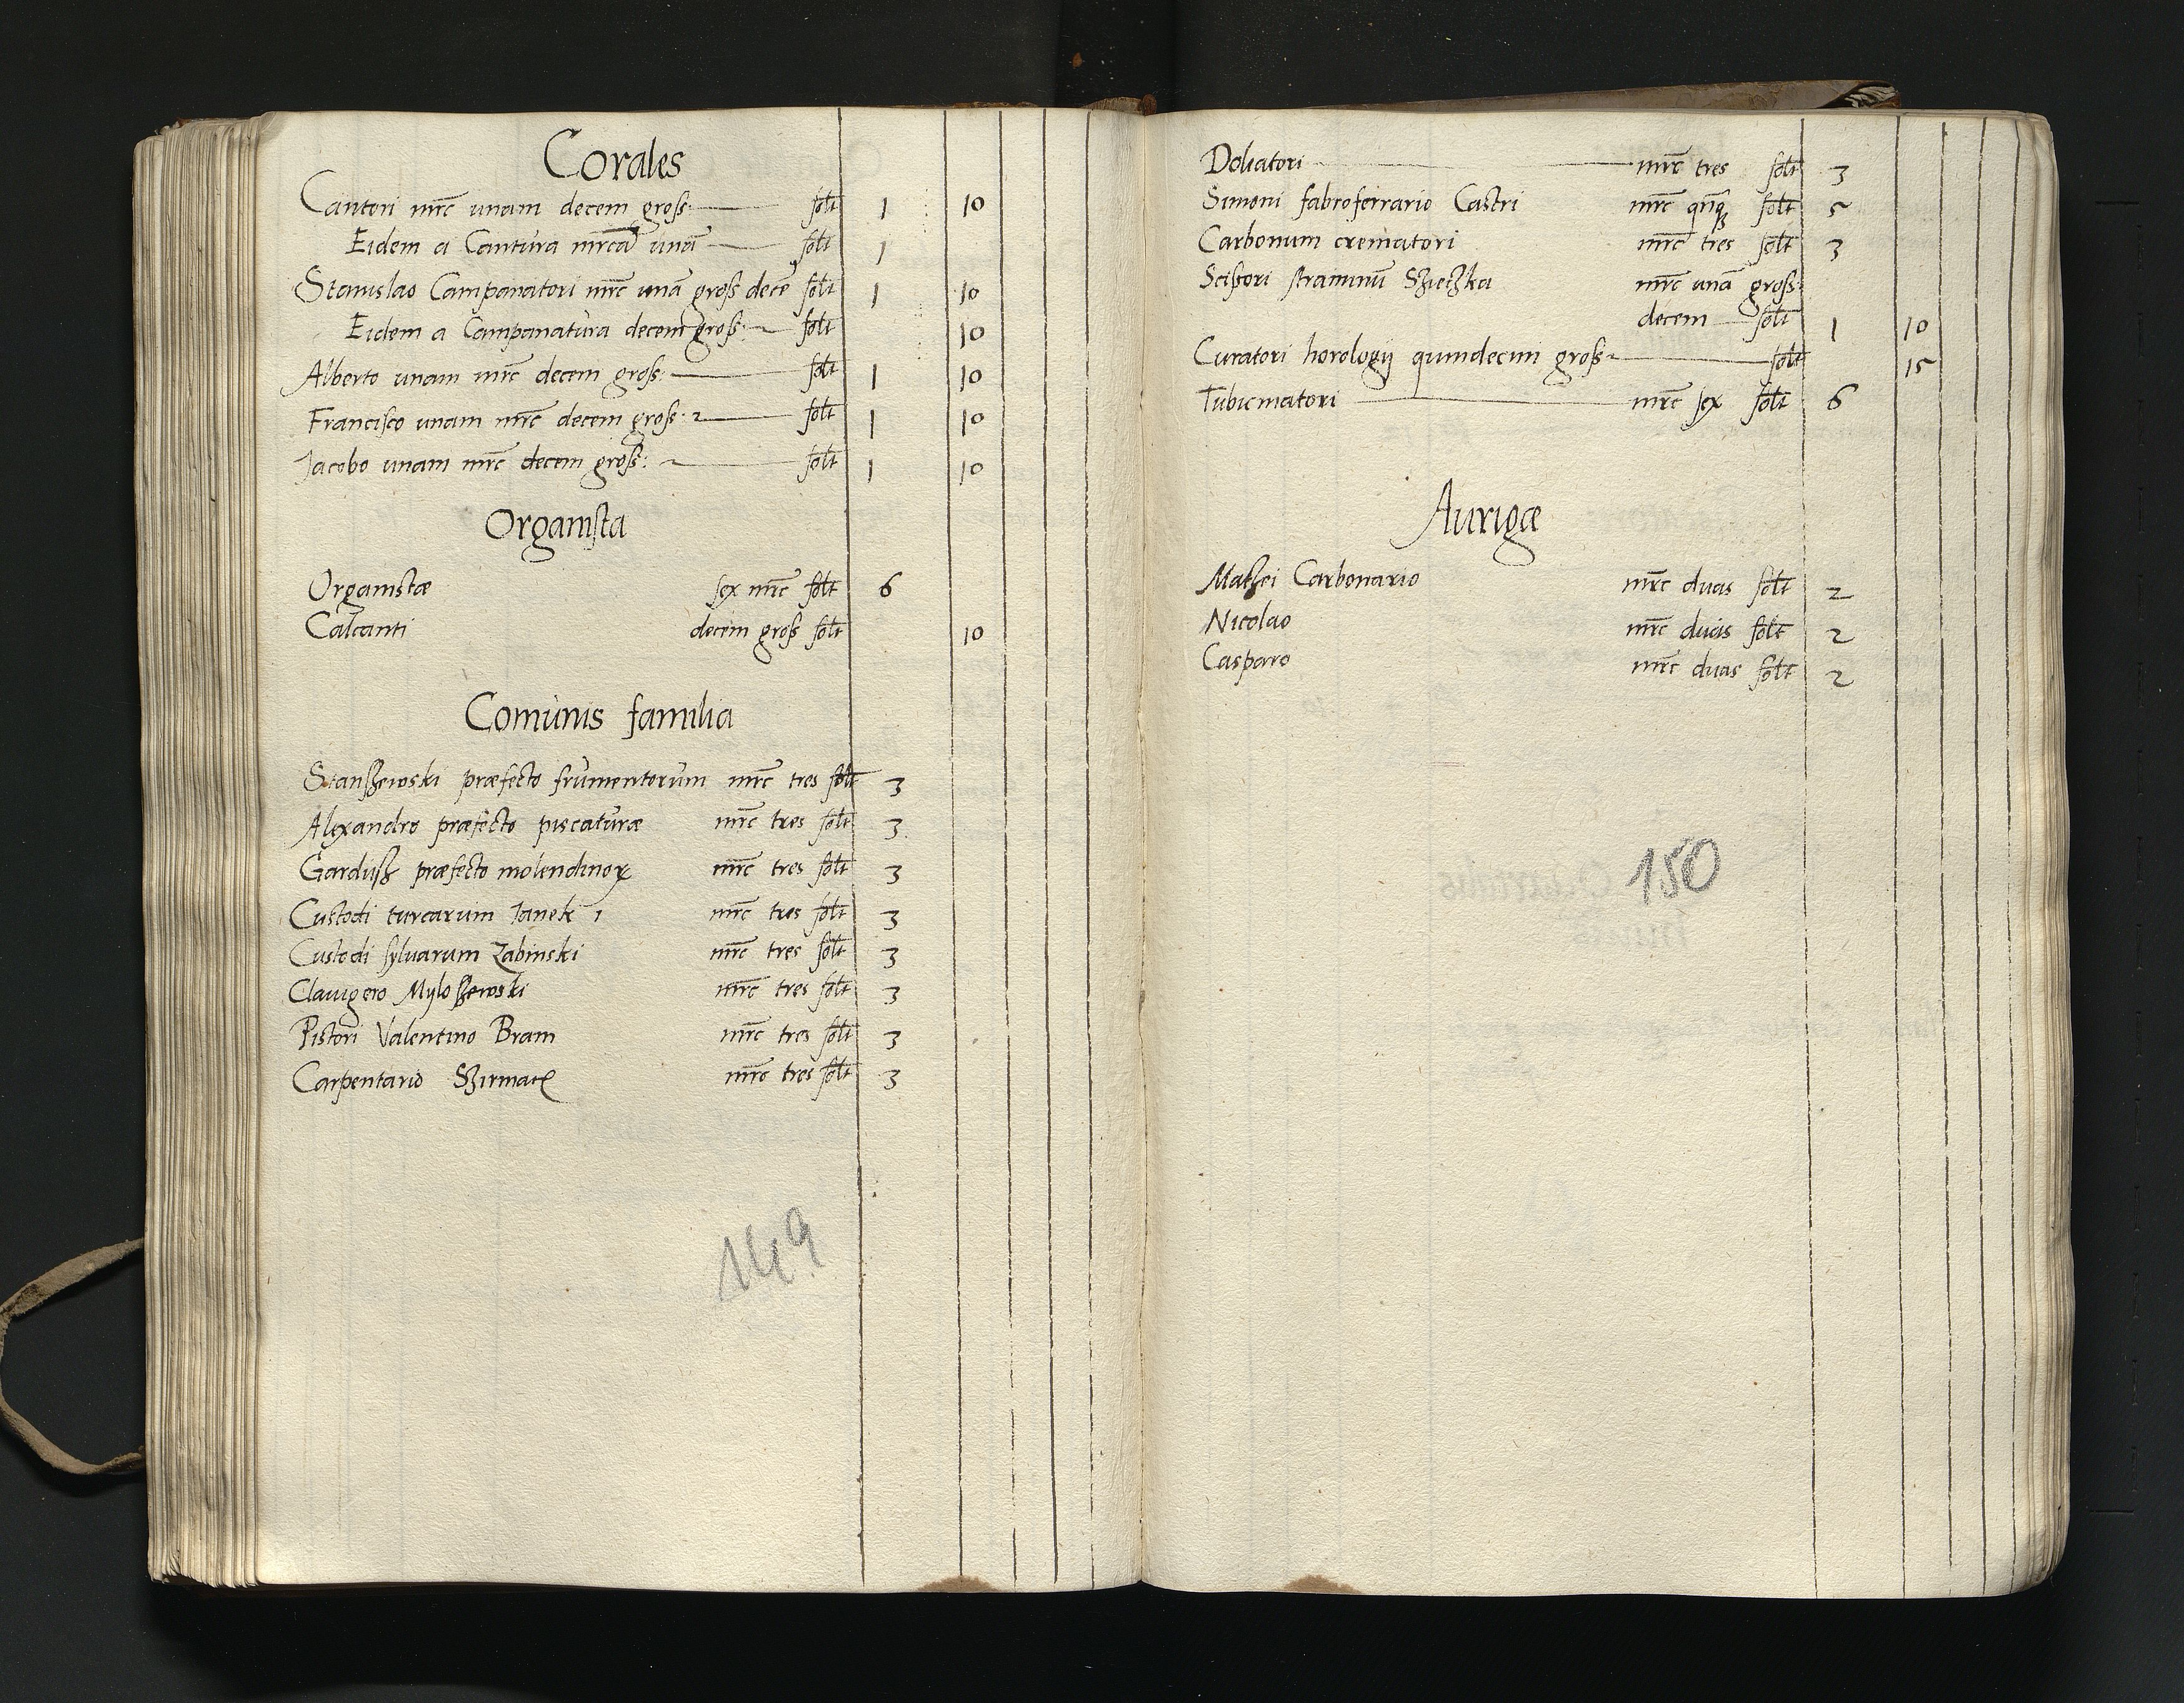 Corales
Cantori mrc unam decem gross: solt 1 10
Eidem a Cantura mrcã unã solt 1
Stanislao Campanatori mrc unã gross decẽ solt 1 10
Eidem a Campanatura decem gross: solt 10
Alberto unam mrc decem gross: solt 1 10
Francisco unam mrc decem gross: solt 1 10
Jacobo unam mrc decem gross: solt 1 10
Organista
Organistæ sex mrc solt 6
Calcanti decem gross solt 10
Comunis familia
Stanszewski præfecto frumentorum mrc tres solt 3
Alexandro præfecto piscaturæ mrc tres solt 3
Gardissz præfecto molendinoꝝ mrc tres solt 3
Custodi turcarum Janek 1 mrc tres solt 3
Custodi sylvarum Zabinski mrc tres solt 3
Clavigero Myloszewski mrc tres solt 3
Pistori Valentino Bram mrc tres solt 3
Carpentario Szirmatz mrc tres solt 3
149
Doliatori mrc tres solt 3
Simoni fabroferrario Castri mrc qnqꝫ solt 5
Carbonum crematori mrc tres solt 3
Scissori straminũ Szieczka mrc unã gross:
decem solt 1 10
Curatori horologij quindecim gross solt 15
Tubicinatori mrc sex solt 6
Aurigæ
Matzei Carbonario mrc duas solt 2
Nicolao mrc duas solt 2
Casparo mrc duas solt 2
150